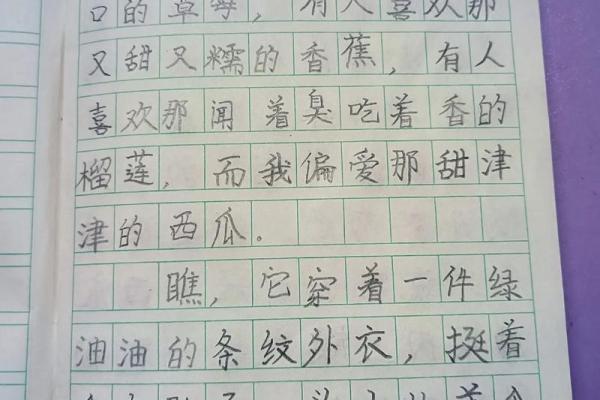 口的草莓，有人喜欢那
又甜又糯的香蕉，有人
喜欢那闻着臭吃着香的
榴莲，而我偏爱那甜津
津的西瓜。
瞧，它穿着一件绿
油油的条纹外衣，挺着